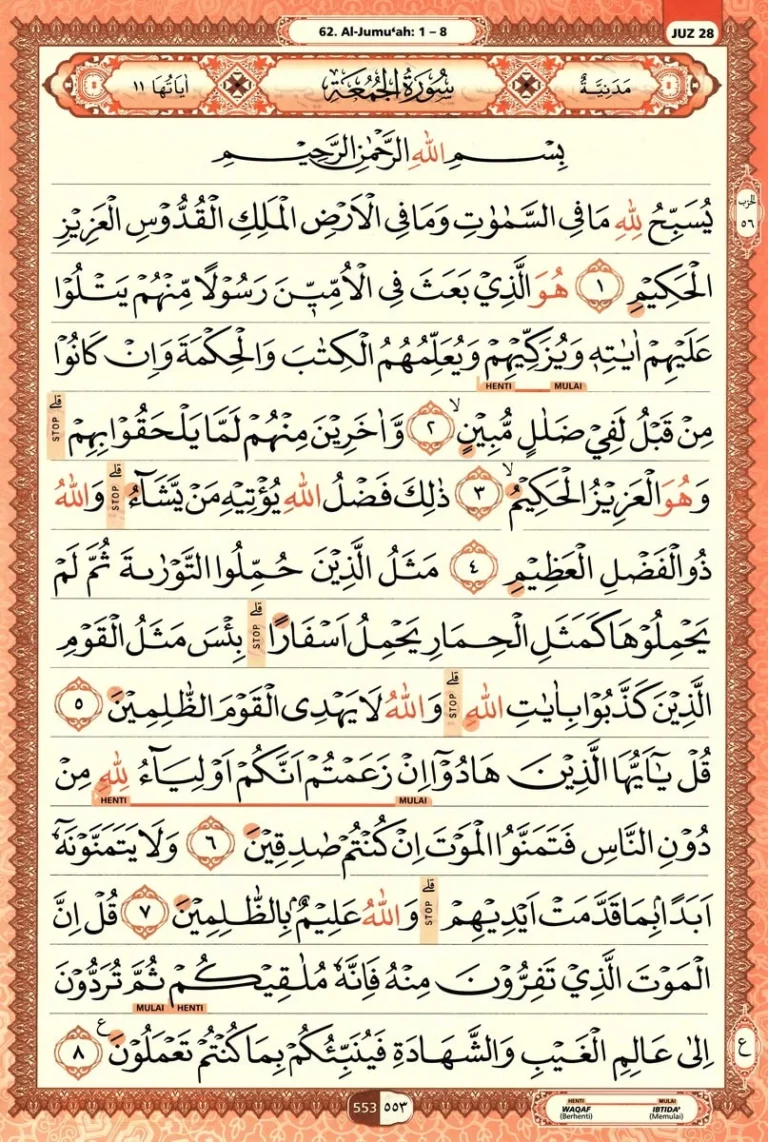 62. Al-Jumu‘ah: 1 – 8
JUZ 28
مَدَنِيَّةٌ سُوْرَةُ الْجُمُعَةِ اٰيَاتُهَا ١١
بِسْمِ اللّٰهِ الرَّحْمٰنِ الرَّحِيْمِ
الحزب ٥٦
يُسَبِّحُ لِلّٰهِ مَا فِى السَّمٰوٰتِ وَمَا فِى الْاَرْضِ الْمَلِكِ الْقُدُّوْسِ الْعَزِيْزِ
الْحَكِيْمِ ١ هُوَ الَّذِيْ بَعَثَ فِى الْاُمِّيّٖنَ رَسُوْلًا مِّنْهُمْ يَتْلُوْا
عَلَيْهِمْ اٰيٰتِهٖ وَيُزَكِّيْهِمْ وَيُعَلِّمُهُمُ الْكِتٰبَ وَالْحِكْمَةَ وَاِنْ كَانُوْا
HENTI MULAI
مِنْ قَبْلُ لَفِيْ ضَلٰلٍ مُّبِيْنٍۙ ٢ وَّاٰخَرِيْنَ مِنْهُمْ لَمَّا يَلْحَقُوْا بِهِمْۗ STOP
وَهُوَ الْعَزِيْزُ الْحَكِيْمُۙ ٣ ذٰلِكَ فَضْلُ اللّٰهِ يُؤْتِيْهِ مَنْ يَّشَاۤءُۗ STOP وَاللّٰهُ
ذُو الْفَضْلِ الْعَظِيْمِ ٤ مَثَلُ الَّذِيْنَ حُمِّلُوا التَّوْرٰىةَ ثُمَّ لَمْ
يَحْمِلُوْهَا كَمَثَلِ الْحِمَارِ يَحْمِلُ اَسْفَارًاۗ STOP بِئْسَ مَثَلُ الْقَوْمِ
الَّذِيْنَ كَذَّبُوْا بِاٰيٰتِ اللّٰهِۗ STOP وَاللّٰهُ لَا يَهْدِى الْقَوْمَ الظّٰلِمِيْنَ ٥
قُلْ يٰٓاَيُّهَا الَّذِيْنَ هَادُوْٓا اِنْ زَعَمْتُمْ اَنَّكُمْ اَوْلِيَاۤءُ لِلّٰهِ مِنْ
MULAI HENTI
دُوْنِ النَّاسِ فَتَمَنَّوُا الْمَوْتَ اِنْ كُنْتُمْ صٰدِقِيْنَ ٦ وَلَا يَتَمَنَّوْنَهٗٓ
اَبَدًاۢ بِمَا قَدَّمَتْ اَيْدِيْهِمْۗ STOP وَاللّٰهُ عَلِيْمٌۢ بِالظّٰلِمِيْنَ ٧ قُلْ اِنَّ
الْمَوْتَ الَّذِيْ تَفِرُّوْنَ مِنْهُ فَاِنَّهٗ مُلٰقِيْكُمْ ثُمَّ تُرَدُّوْنَ
MULAI HENTI
اِلٰى عَالِمِ الْغَيْبِ وَالشَّهَادَةِ فَيُنَبِّئُكُمْ بِمَا كُنْتُمْ تَعْمَلُوْنَ ࣖ ٨
ع
553 ٥٥٣
HENTI MULAI
WAQAF IBTIDA’
(Berhenti) (Memulai)